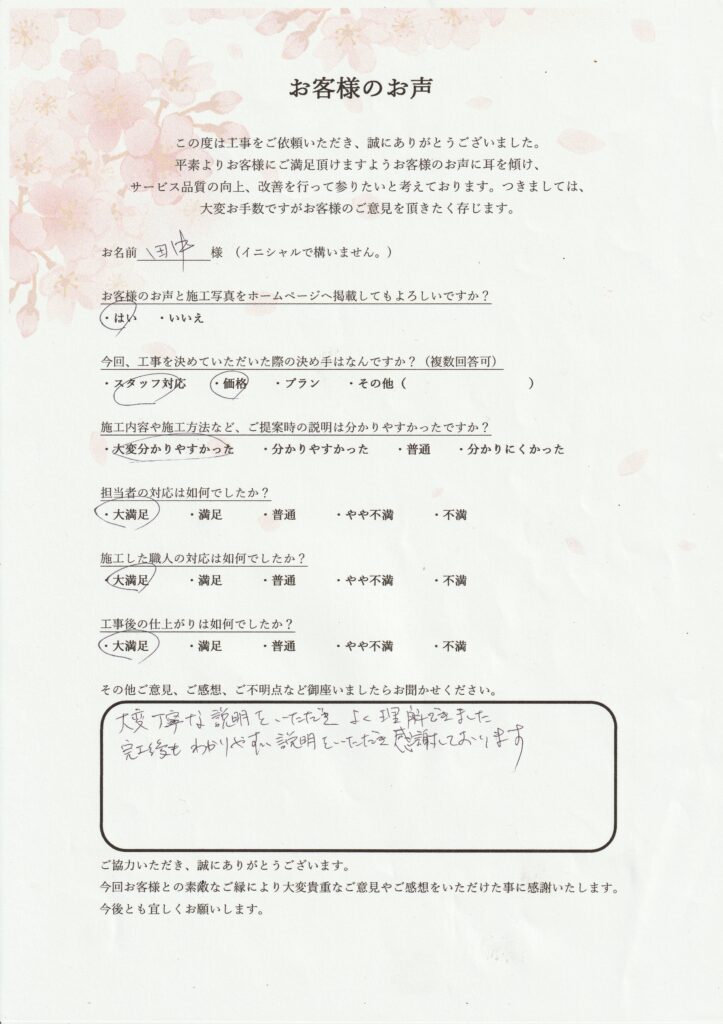 お客様のお声
この度は工事をご依頼いただき、誠にありがとうございました。
平素よりお客様にご満足頂けますようお客様のお声に耳を傾け、
サービス品質の向上、改善を行って参りたいと考えております。つきましては、
大変お手数ですがお客様のご意見を頂きたく存じます。
お名前 田中 様 （イニシャルで構いません。）
お客様のお声と施工写真をホームページへ掲載してもよろしいですか？
・はい ・いいえ
今回、工事を決めていただいた際の決め手はなんですか？（複数回答可）
・スタッフ対応 ・価格 ・プラン ・その他（ ）
施工内容や施工方法など、ご提案時の説明は分かりやすかったですか？
・大変分かりやすかった ・分かりやすかった ・普通 ・分かりにくかった
担当者の対応は如何でしたか？
・大満足 ・満足 ・普通 ・やや不満 ・不満
施工した職人の対応は如何でしたか？
・大満足 ・満足 ・普通 ・やや不満 ・不満
工事後の仕上がりは如何でしたか？
・大満足 ・満足 ・普通 ・やや不満 ・不満
その他ご意見、ご感想、ご不明点など御座いましたらお聞かせください。
大変丁寧な説明をいただき よく理解できました
完工後も わかりやすい説明をいただき感謝しております
ご協力いただき、誠にありがとうございます。
今回お客様との素敵なご縁により大変貴重なご意見やご感想をいただけた事に感謝いたします。
今後とも宜しくお願いします。